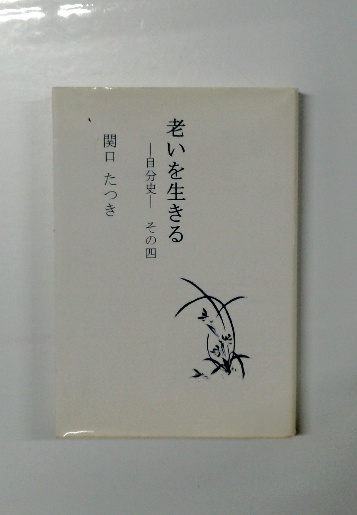 老いを生きる
―自分史― その四
関口 たつき